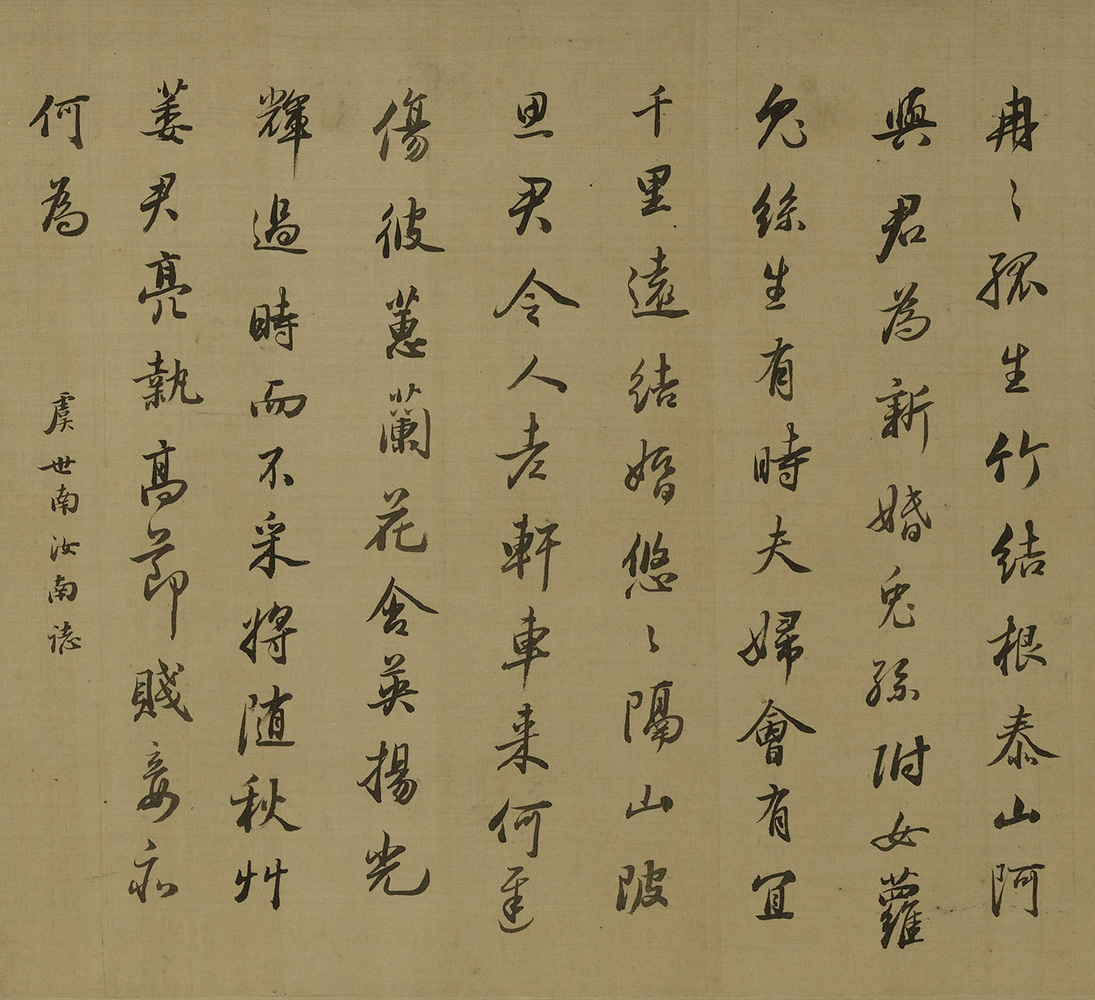 冉〻孤生竹結根泰山阿
與君為新婚兎絲附女蘿
兎絲生有時夫婦會有宜
千里遠結婚悠〻隔山陂
思君令人老軒車来何遲
傷彼蕙蘭花含英揚光
輝過時而不采將随秋艸
萎君亮執高節賤妾亦
何為
虞世南汝南誌